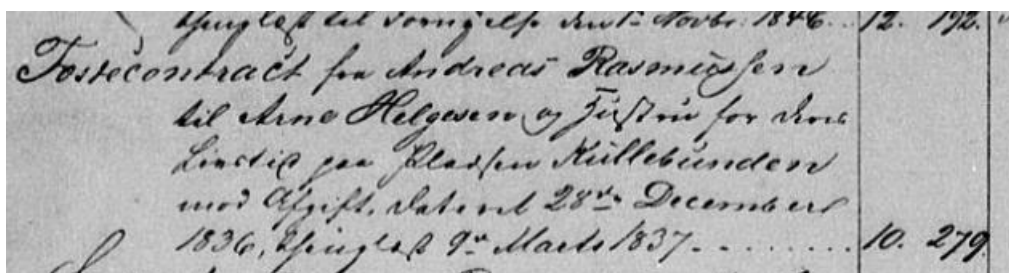 thinglæst til Foraar 1ste Novbr. 1846. 12. 192.
Festecontract fra Andreas Rasmussen
til Arne Helgesen og Hustru for deres
Livstid paa Pladsen Kullebunden
mod Afgift, dateret 28de December
1836, thinglæst 9de Marts 1837. 10. 279.